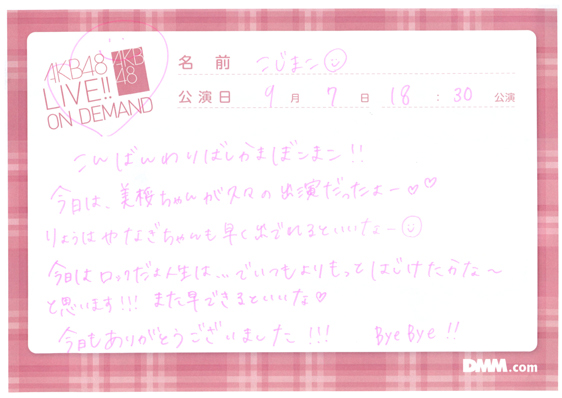 AKB48 LIVE!! ON DEMAND
AKB48
名前 こじまこ
公演日 9月7日 18:30公演
こんばんわりばしかまぼこまこ!!
今日は、美桜ちゃんが久々の出演だったよー♡♡
りょうはやなぎちゃんも早く出られるといいなー
今日はロックだよ人生は、、、でいつもよりもっとはじけたかな〜
と思います!!! また早できるといいな♡
今日もありがとうございました!!! ByeBye!!
DMM.com